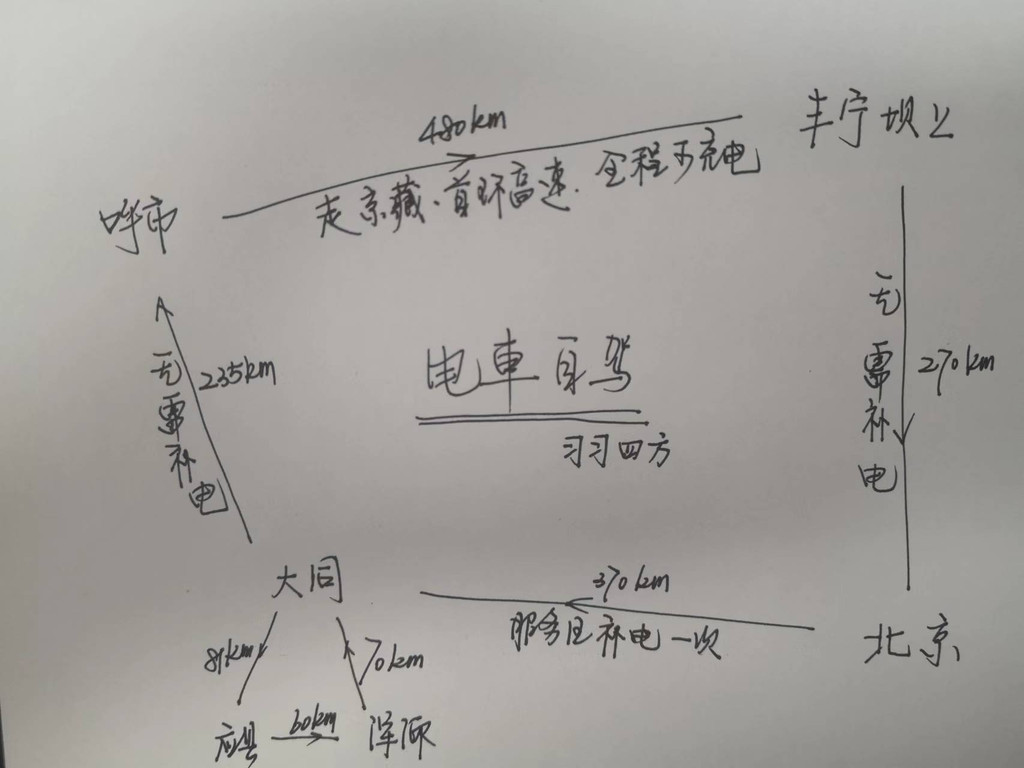 480km
丰宁坝上
呼市
走京藏、首环高速、全程不充电
无需补电
235km
电車自驾
习习四方
无需补电
270km
大同
370km
服务区补电一次
北京
81km
70km
应县
60km
浑源